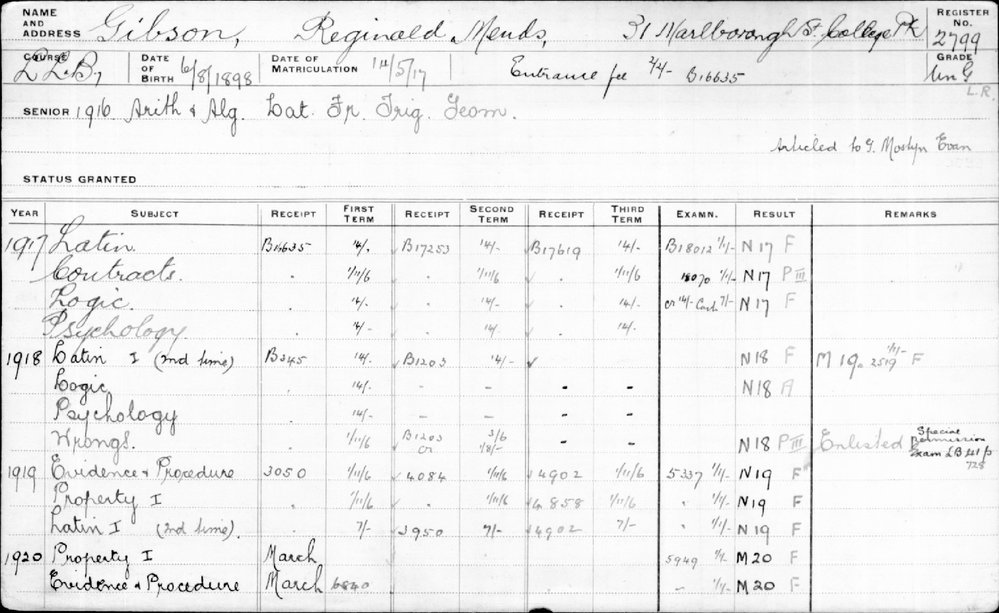 NAME AND ADDRESS Gibson, Reginald Mends, 31 Marlborough St. College Pk REGISTER No. 2799
COURSE LL.B, DATE OF BIRTH 6/8/1898 DATE OF MATRICULATION 14/5/17 Entrance fee 2/4/- B16635 GRADE Un G
L.R.
SENIOR 1916 Arith & Alg. Lat. Fr. Trig. Geom.
Articled to G. Mostyn Evan
STATUS GRANTED
YEAR SUBJECT RECEIPT FIRST TERM RECEIPT SECOND TERM RECEIPT THIRD TERM EXAMN. RESULT REMARKS
1917 Latin. B16635 14/. B17253 14/- B17619 14/- B18012 1/1/- N 17 F
Contracts. . 1/11/6 . 1/11/6 . 1/11/6 18070 1/1/- N 17 P III
Logic. . 14/. . 14/- . 14/- cr 14/- Cash 7/- N 17 F
Psychology. . 14/- . 14 . 14/-
1918 Latin I (2nd time) B345 14/. B1203 14/- N18 F M 19. 2519 1/1/- F
Logic . 14/. - - - - N18 A
Psychology 14/- - - - -
Wrongs. 1/11/6 B1203 cr 3/6 1/8/- - - N18 P III Enlisted Special Permission Exam LB 41 p 728
1919 Evidence & Procedure 3050 1/11/6 4084 1/11/6 4902 1/11/6 5337 1/1/- N19 F
Property I . 1/11/6 . 1/11/6 4858 1/11/6 " 1/1/- N19 F
Latin I (2nd time) . 7/- 3950 7/- 4902 7/- " 1/1/- N19 F
1920 Property I March 5949 1/1/- M20 F
Evidence & Procedure March 6840 - 1/1/- M20 F